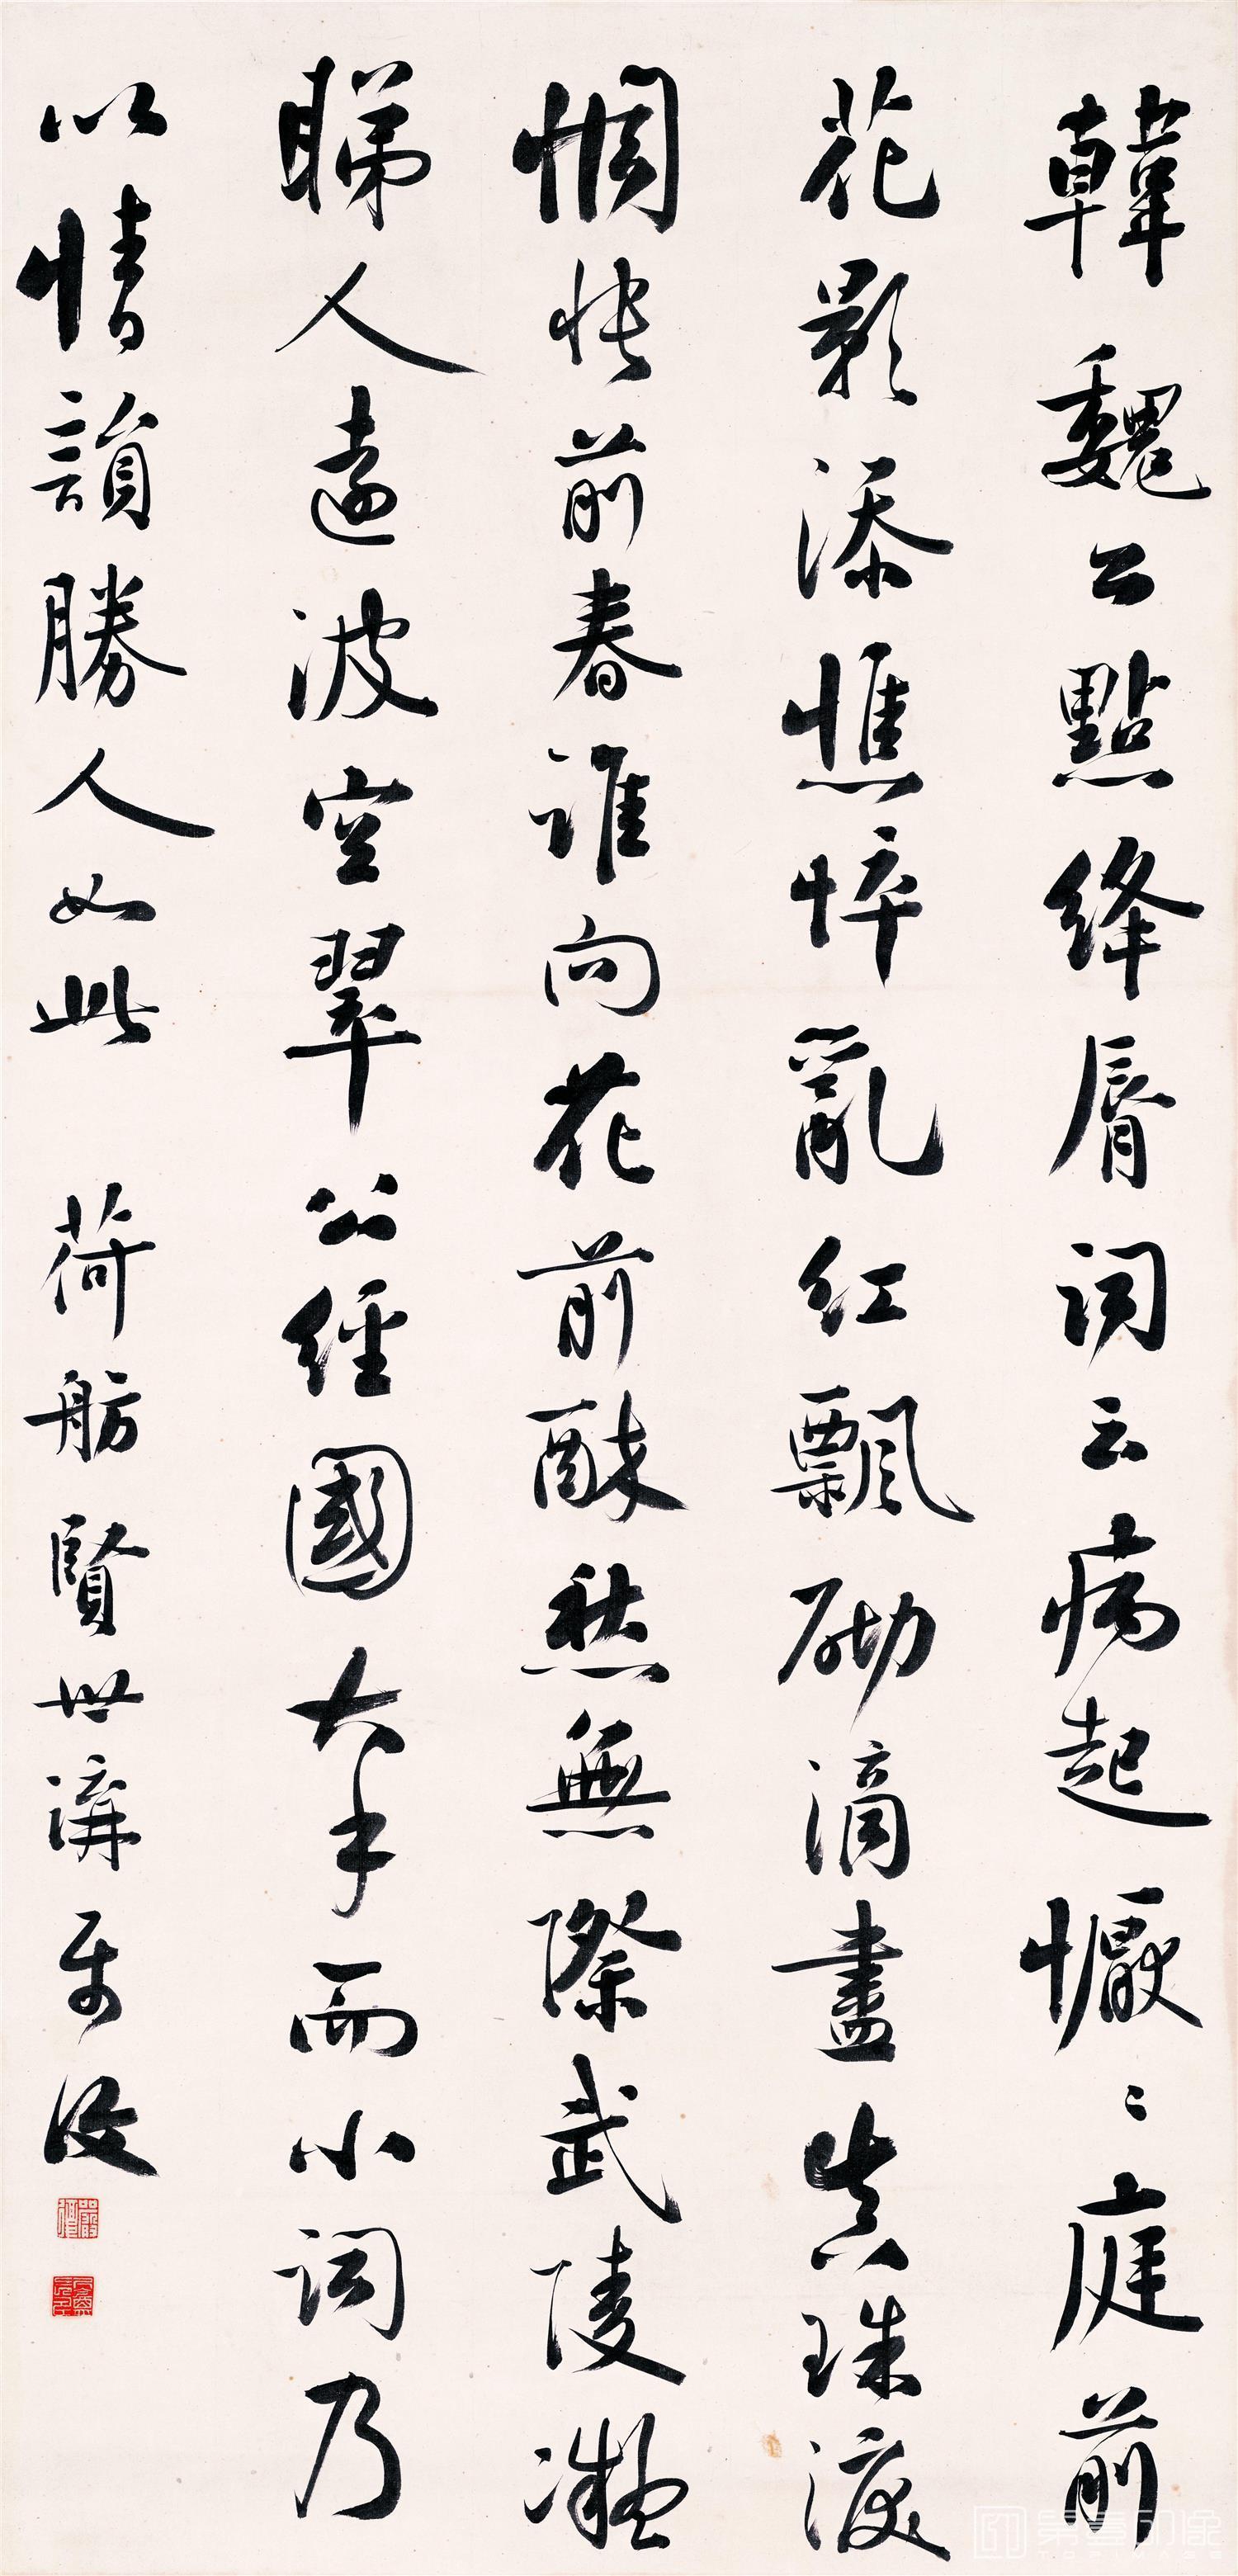 韓魏公點絳脣詞云病起懨〻庭前
花影添憔悴亂紅飄砌滴盡真珠淚
惆悵前春誰向花前醉愁無際武陵凝
睇人遠波空翠公經國大手而小詞乃
以情韻勝人如此 荷舫賢世講屬 復
第壹印像
TOPIMAGE